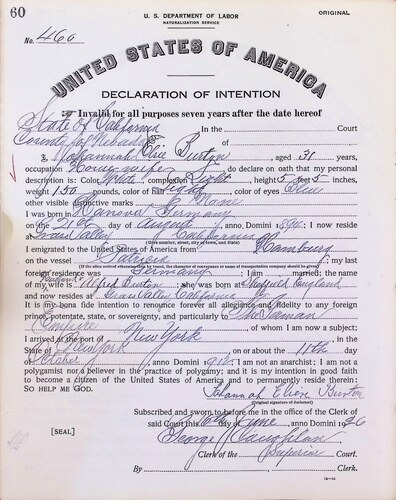 60
U. S. DEPARTMENT OF LABOR
NATURALIZATION SERVICE
ORIGINAL
No. 460
UNITED STATES OF AMERICA
DECLARATION OF INTENTION
Invalid for all purposes seven years after the date hereof
State of California
In the Court
County of Nevada
I, Johannah Elise Burton, aged 31 years,
occupation Housewife, do declare on oath that my personal
description is: Color White, complexion Light, height 5 feet 5 inches,
weight 150 pounds, color of hair Light, color of eyes Blue
other visible distinctive marks None
I was born in Hanover Germany
on the 21st day of August, anno Domini 1894; I now reside
at Grass Valley California
(Give number, street, city or town, and State)
I emigrated to the United States of America from Hamburg
on the vessel Patricia; my last
(If the alien arrived otherwise than by vessel, the character of conveyance or name of transportation company should be given)
foreign residence was Germany; I am married; the name
of my wife is Alfred Burton; she was born at England
and now resides at Grass Valley California
It is my bona fide intention to renounce forever all allegiance and fidelity to any foreign
prince, potentate, state, or sovereignty, and particularly to The German
Empire, of whom I am now a subject;
I arrived at the port of New York, in the
State of New York, on or about the 11th day
of October, anno Domini 1912; I am not an anarchist; I am not a
polygamist nor a believer in the practice of polygamy; and it is my intention in good faith
to become a citizen of the United States of America and to permanently reside therein:
SO HELP ME GOD.
Johannah Elise Burton
(Original signature of declarant)
Subscribed and sworn to before me in the office of the Clerk of
said Court this 10th day of June, anno Domini 1926
[SEAL]
George J. Coughlan
Clerk of the Superior Court.
By , Clerk.